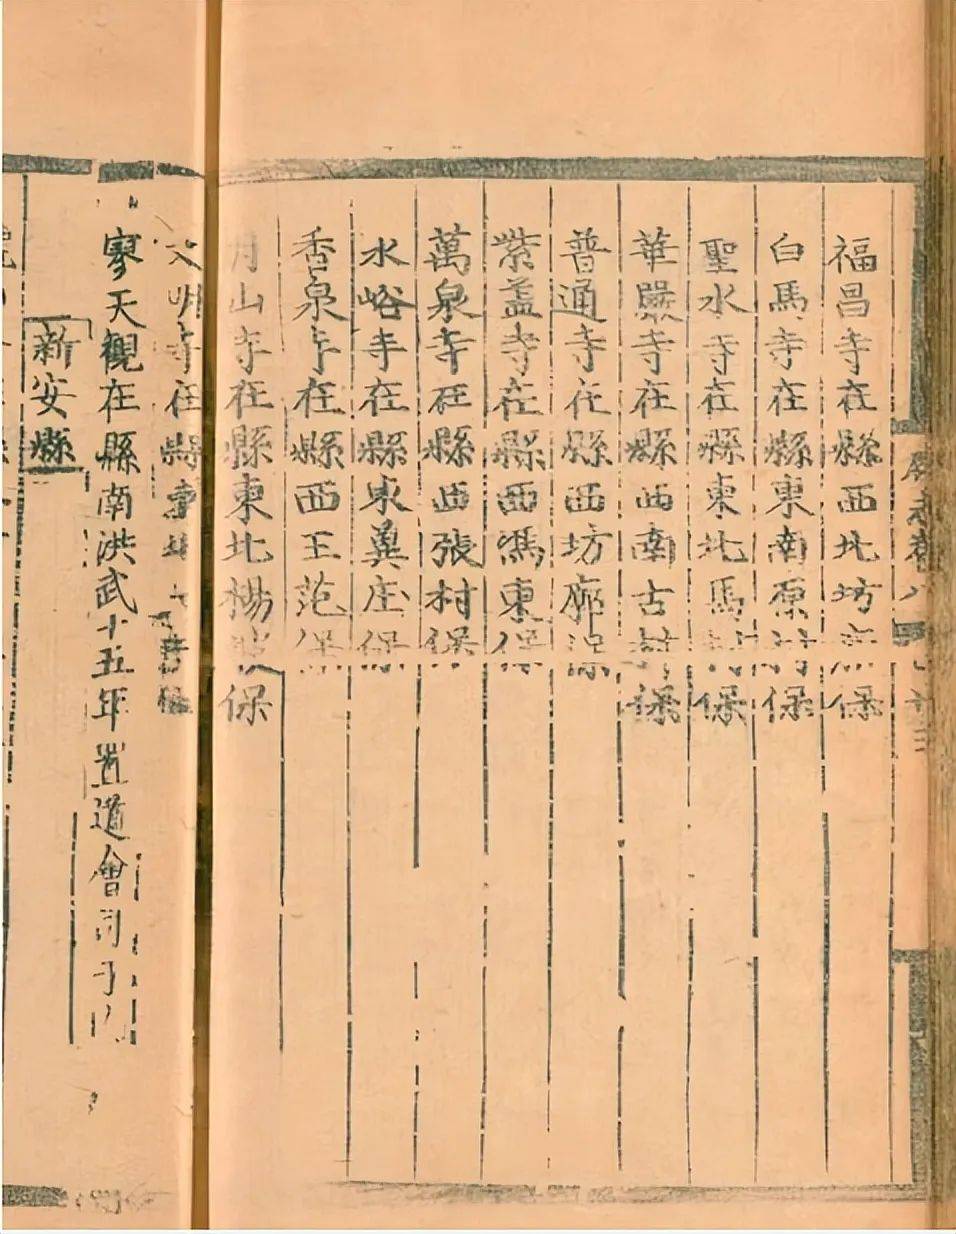 福昌寺在縣西北坊保
白馬寺在縣東南原村保
聖水寺在縣東北馬村保
華嚴寺在縣西南古村保
普通寺在縣西坊廓保
紫蓋寺在縣西馮東保
萬泉寺在縣西張村保
水峪寺在縣東冀庄保
香泉寺在縣西王范保
月山寺在縣東北楊保
文明寺在縣東北
寥天觀在縣南洪武十五年置道會司于內
新安縣